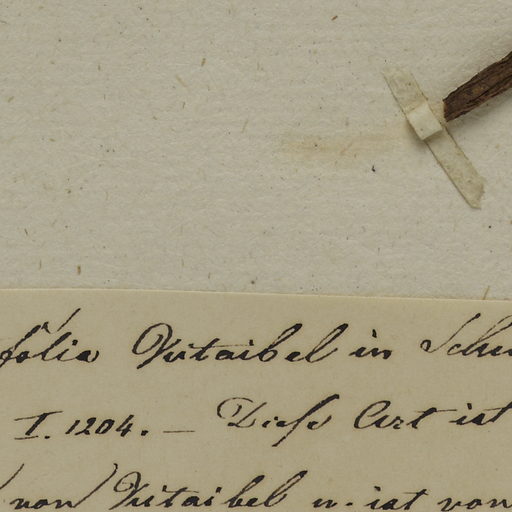 folia Kitaibel in Schu
I. 1204. — Diese Art ist
von Kitaibel u. ist von